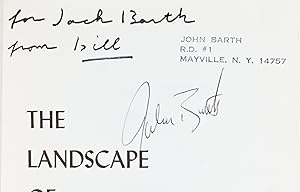 for Jack Barth
from Bill
JOHN BARTH
R.D. #1
MAYVILLE, N. Y. 14757
John Barth
THE
LANDSCAPE
OF